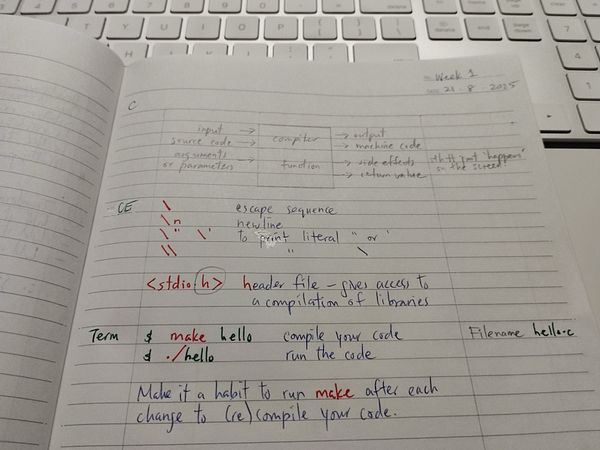 Week 1
21 · 8 · 2025
C
input → compiler → output
source code → → machine code
arguments → function → side effects
or parameters → return value
on the screen
CE \ escape sequence
\n newline
\" \' to print literal " or '
\\ " \
<stdio.h> header file – gives access to
a compilation of libraries
Term $ make hello compile your code Filename hello.c
$ ./hello run the code
Make it a habit to run make after each
change to (re)compile your code.